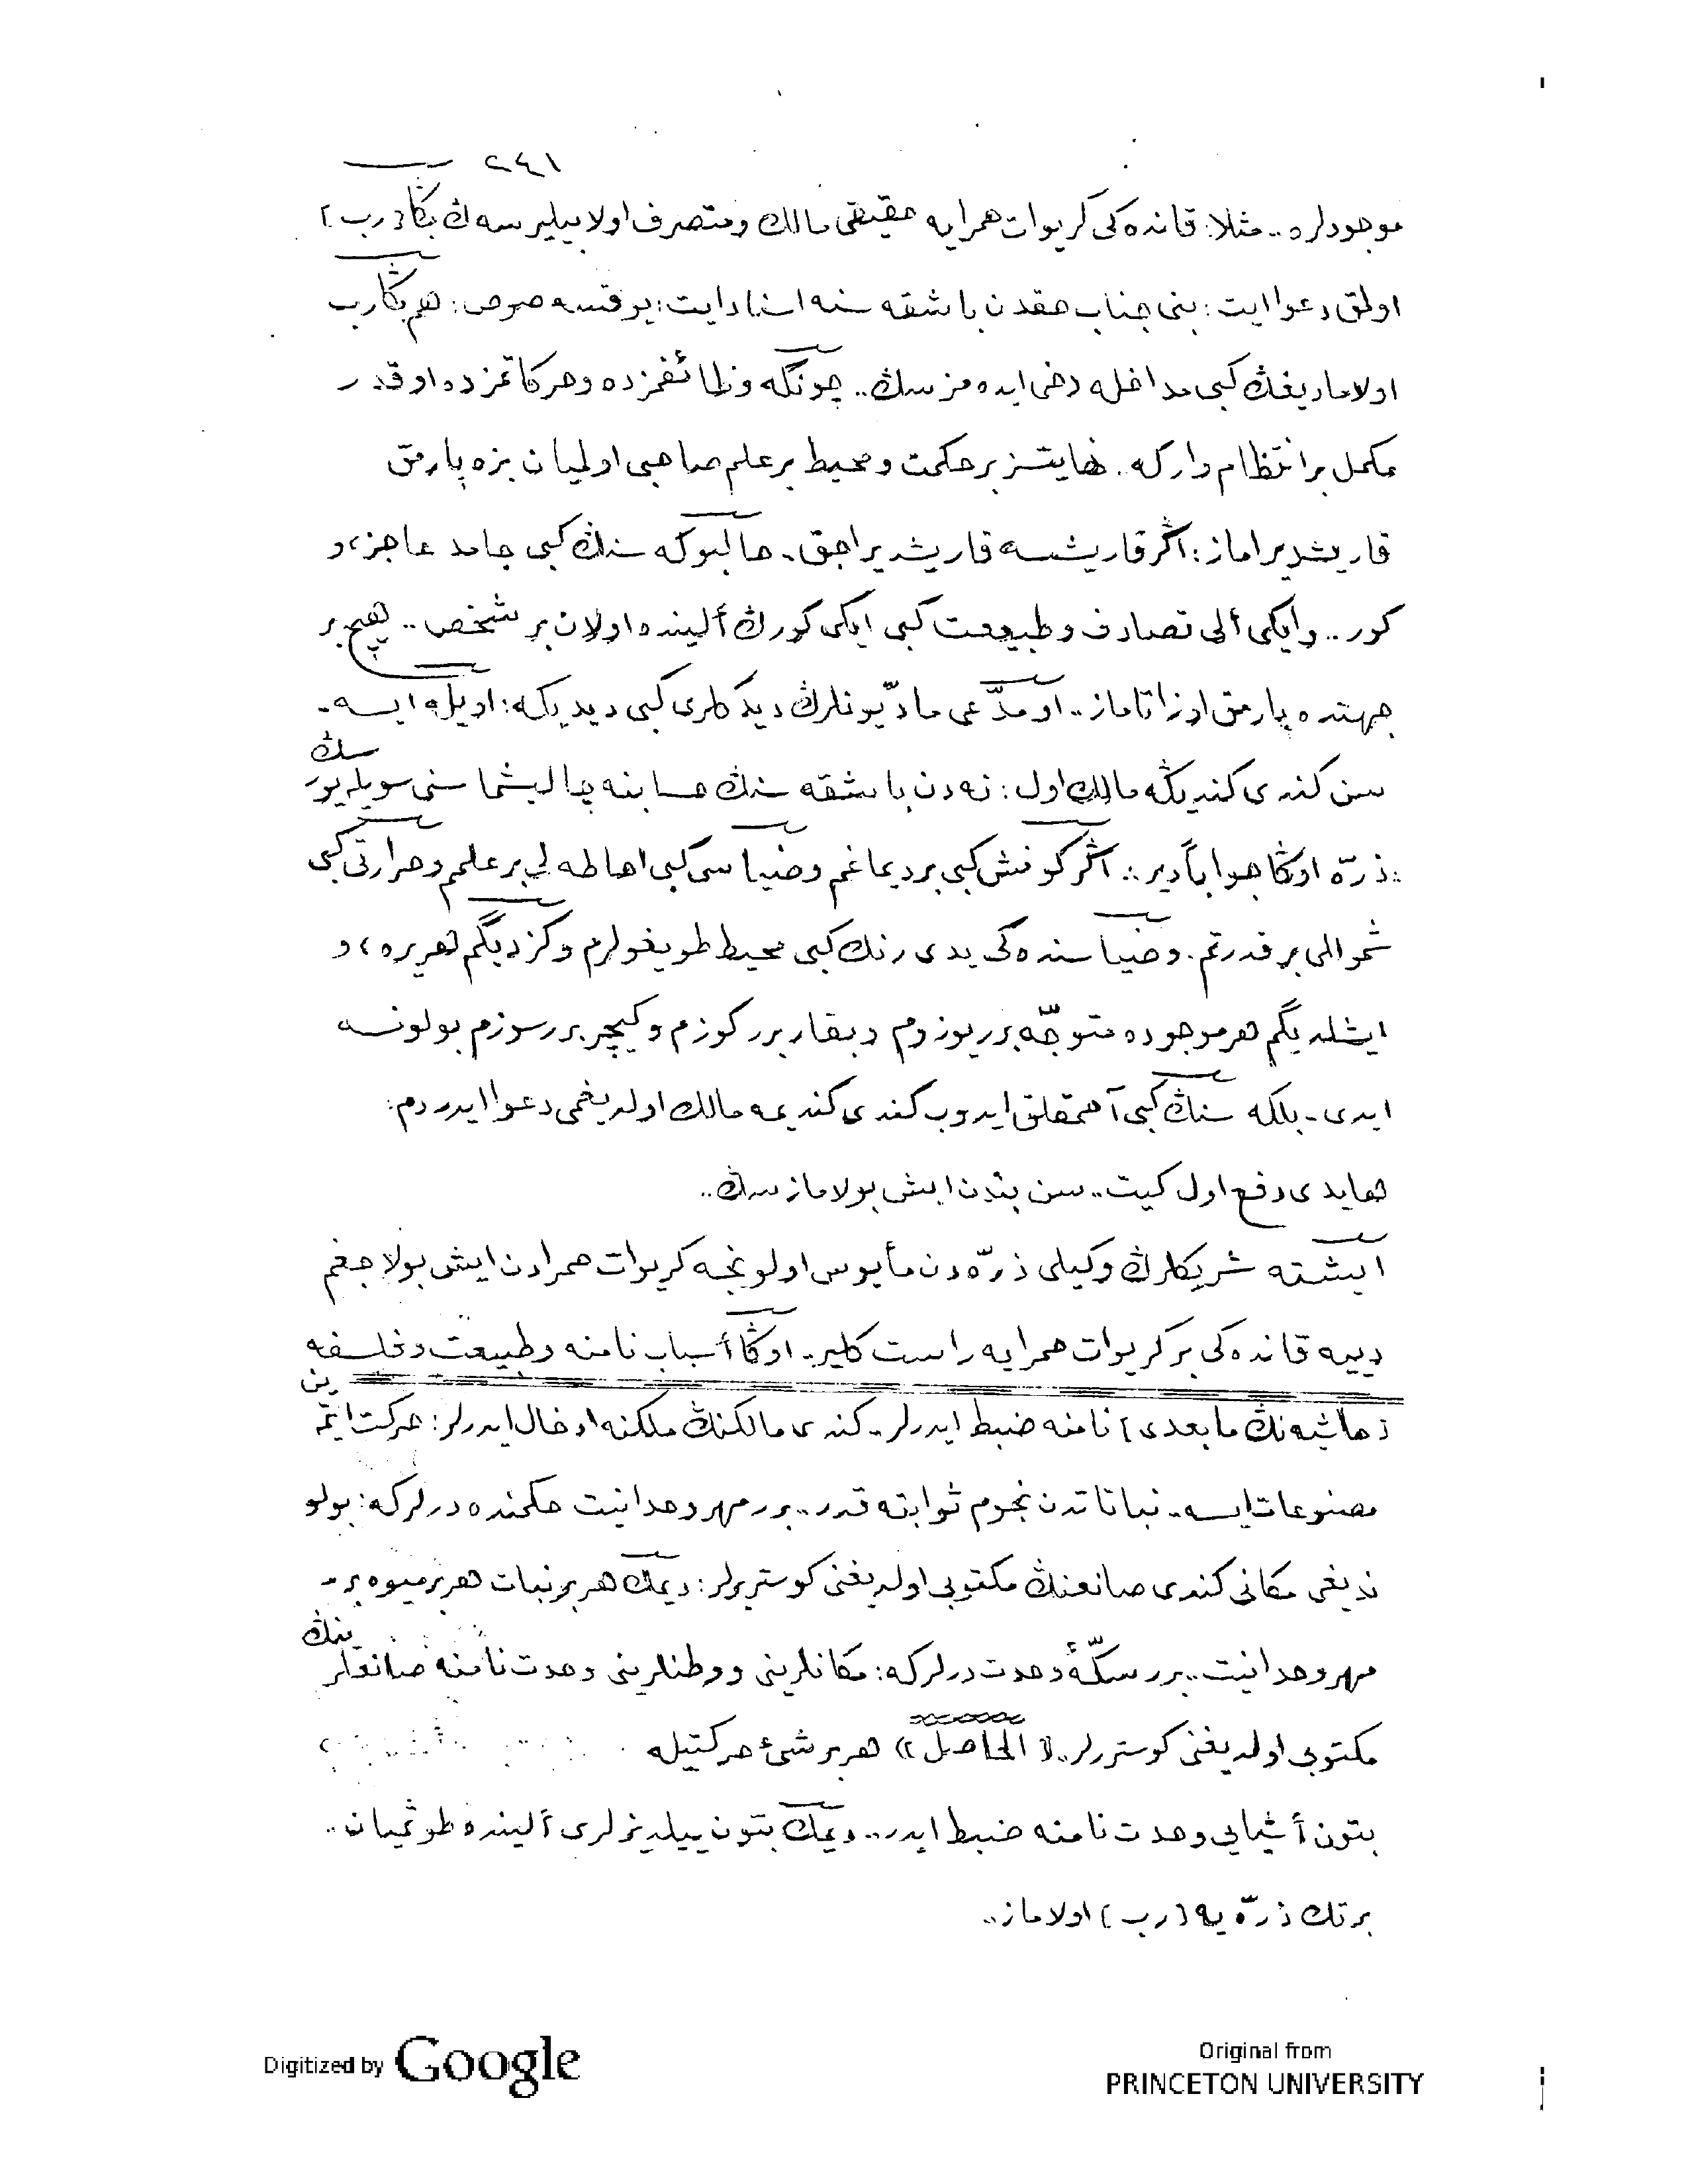 ٢٤١
موجودلره.. مثلا: قانده‌كى كريوات حمرايه حقيقى مالك ومتصرف اولا بيليرسه‌ڭ بڭا (رب)
اولمق دعوا ايت: بنى جناب حقدن باشقه سنه اسناد ايت: يوقسه صوص: هم بڭا رب
اولاماديغڭ كبى مداخله دخى ايده‌مز سڭ.. چونكه وظائفمزده وحركاتمزده او قدر
مكمل بر انتظام وار كه. نهايتسز بر حكمت ومحيط بر علم صاحبى اولميان بزه پارمق
قاريشديراماز: اگر قاريشسه قاريشديراجق. حالبوكه سنڭ كبى جامد عاجز، و
كور.. وايكى ألى تصادف وطبيعت كبى ايكى كورڭ ألينده اولان بر شخص.. هيچ بر
جهتده پارمق اوزاتاماز.. او مدّعى ماديّونلرڭ ديدكلرى كبى ديديكه: اويله ايسه.
سن كندى كنديڭه مالك اول: نه‌دن باشقه سنڭ حسابنه چاليشماسنى سويله‌يور
سڭ
: ذرّه اوڭا جواباً دير: اگر گونش كبى بر ديماغم وضياسى كبى احاطه‌لى بر علمم وحرارتى كبى
شموللى بر قدرتم. وضياسنده‌كى يدى رنك كبى محيط طويغولرم وگزديگم هر يره، و
ايشلديگم هر موجوده متوجّه برر يوزوم وبقار برر گوزم وگچر برر سوزم بولونسه
ايدى. بلكه سنڭ كبى آحمقلق ايدوب كندى كنديمه مالك اولديغمى دعوا ايدردم:
هايدى دفع اول گيت.. سن بندن ايش بولامازسڭ..
ايشته شريكلرڭ وكيلى ذرّه‌دن مأيوس اولونجه كريوات حمرادن ايش بولاجغم
دييه قانده‌كى بر كريوات حمرايه راست گلير. اوڭا أسباب نامنه وطبيعت وفلسفه
(حاشيه‌نڭ مابعدى) نامنه ضبط ايدرلر. كندى مالكنڭ ملكنه ادخال ايدرلر: حركت ايتمه
ين
مصنوعات ايسه. نباتاتدن نجوم ثوابته قدر.. برر مهر وحدانيت حكمنده‌درلر كه: بولو
نديغى مكانى كندى صانعنڭ مكتوبى اولديغنى گوستريرلر: ديمك هر بر نبات هر بر ميوه برر
مهر وحدانيت.. برر سكّۀ وحدت درلر كه: مكانلرينى ووطنلرينى وحدت نامنه صانعلر
ينڭ
مكتوبى اولديغنى گوستررلر.. ((الحاصل)) هر بر شئ حركتيله
بتون أشيايى وحدت نامنه ضبط ايدر.. ديمك بتون ييلديزلرى ألينده طوتميان..
بر تك ذرّه‌يه (رب) اولاماز..
Digitized by Google
Original from
PRINCETON UNIVERSITY